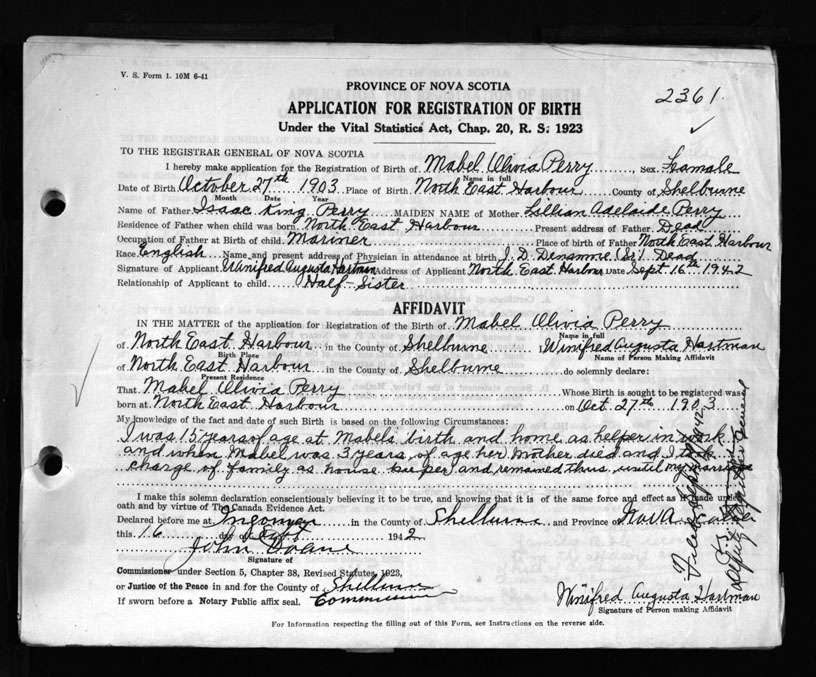 V. S. Form 1. 10M 6-41
2361
PROVINCE OF NOVA SCOTIA
APPLICATION FOR REGISTRATION OF BIRTH
Under the Vital Statistics Act, Chap. 20, R. S. 1923
TO THE REGISTRAR GENERAL OF NOVA SCOTIA
I hereby make application for the Registration of Birth of Mabel Olivia Perry Sex Famale
Name in full
Date of Birth October 27th 1903 Place of Birth North East Harbour County of Shelburne
Month Date Year
Name of Father Isaac King Perry MAIDEN NAME of Mother Lillian Adelaide Perry
Residence of Father when child was born North East Harbour Present address of Father Dead
Occupation of Father at Birth of child Mariner Place of birth of Father North East Harbour
Race English Name and present address of Physician in attendance at birth J. D. Densmore (Sr.) Dead
Signature of Applicant Winifred Augusta Hartman Address of Applicant North East Harbour Date Sept 16th 1942
Relationship of Applicant to child Half-Sister
AFFIDAVIT
IN THE MATTER of the application for Registration of the Birth of Mabel Olivia Perry
Name in full
of North East Harbour in the County of Shelburne Winifred Augusta Hartman
Birth Place Name of Person Making Affidavit
of North East Harbour in the County of Shelburne do solemnly declare:
Present Residence
That Mabel Olivia Perry Whose Birth is sought to be registered was
born at North East Harbour on Oct 27th 1903
My knowledge of the fact and date of such Birth is based on the following Circumstances:
I was 15 years of age at Mabel's birth and home as helper in work
and when Mabel was 3 years of age her Mother died and I took
charge of family as house keeper and remained thus until my marriage
I make this solemn declaration conscientiously believing it to be true, and knowing that it is of the same force and effect as if made under
oath and by virtue of The Canada Evidence Act.
Declared before me at Ingomar in the County of Shelburne and Province of Nova Scotia
this 16 day of Sept 1942
John Doane
Signature of
Commissioner under Section 5, Chapter 38, Revised Statutes, 1923,
or Justice of the Peace in and for the County of Shelburne
If sworn before a Notary Public affix seal. Commissioner
Winifred Augusta Hartman
Signature of Person making Affidavit
For Information respecting the filling out of this Form, see Instructions on the reverse side.
Filed Sept
Deputy Registrar General